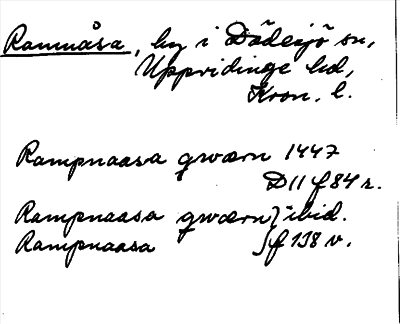 Ramnåsa, by i Dädesjö sn,
Uppvidinge hd,
Kron. l.
Rampnaasa qwærn 1447
D11 f 84 r.
Rampnaasa qwærn } ibid.
Rampnaasa } f 138 v.